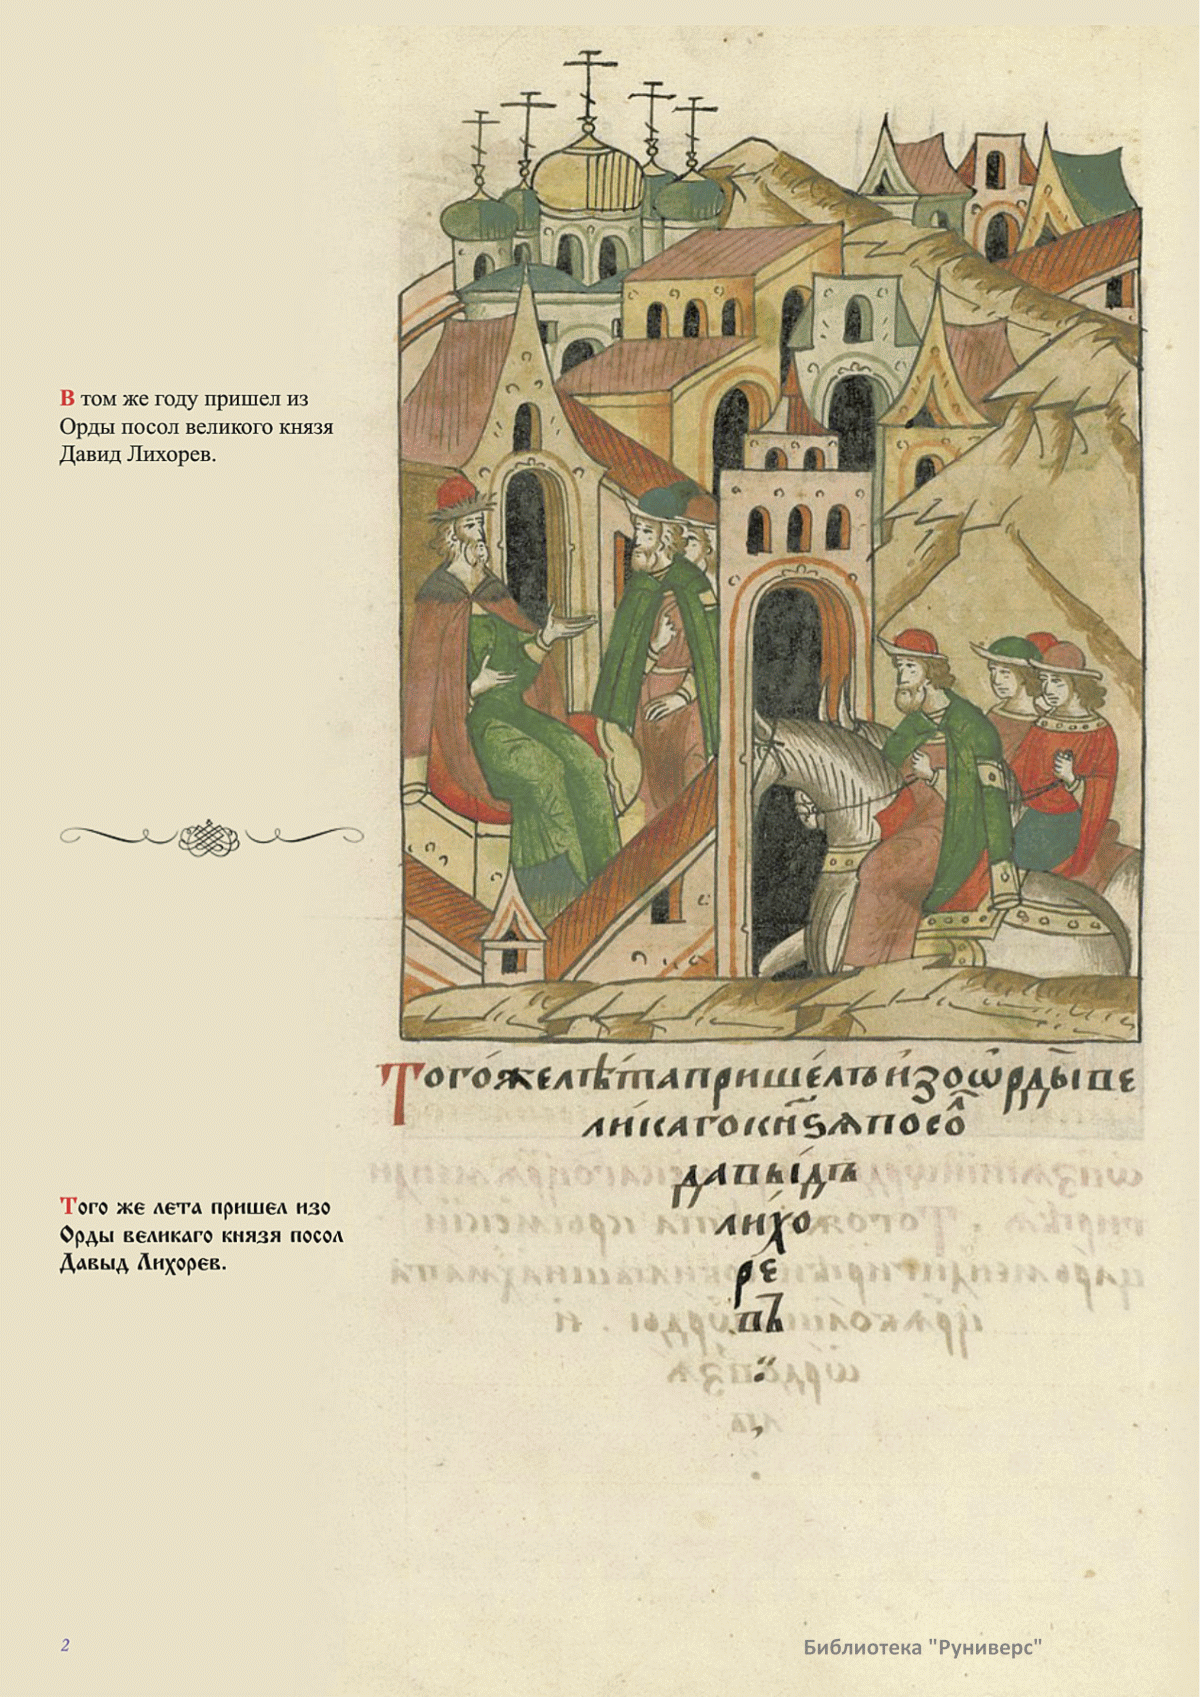 В том же году пришел из
Орды посол великого князя
Давид Лихорев.
Того́желѣ́тапришélъи́зоѡ҆рды̀ве
ли́кагокн҃ѕѧпосо́л
давы́дъ
лихо
ре
въ
Того же лета пришел изо
Орды великаго князя посол
Давыд Лихорев.
2
Библиотека "Руниверс"